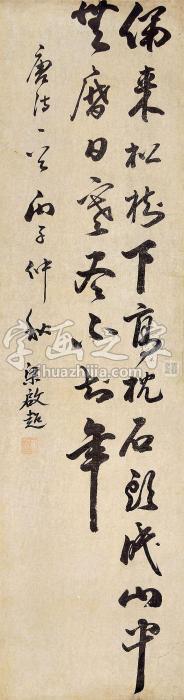 偶來松樹下高枕石頭眠山中
無曆日寒盡不知年
唐詩一首 丙子仲秋 梁啟超
字画之家
huazhijia.com